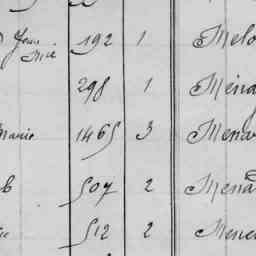 Jean Mie 192 1 Melo
298 1 Ména
Marie 1465 3 Mena
b 507 2 Mena
512 2 Mene